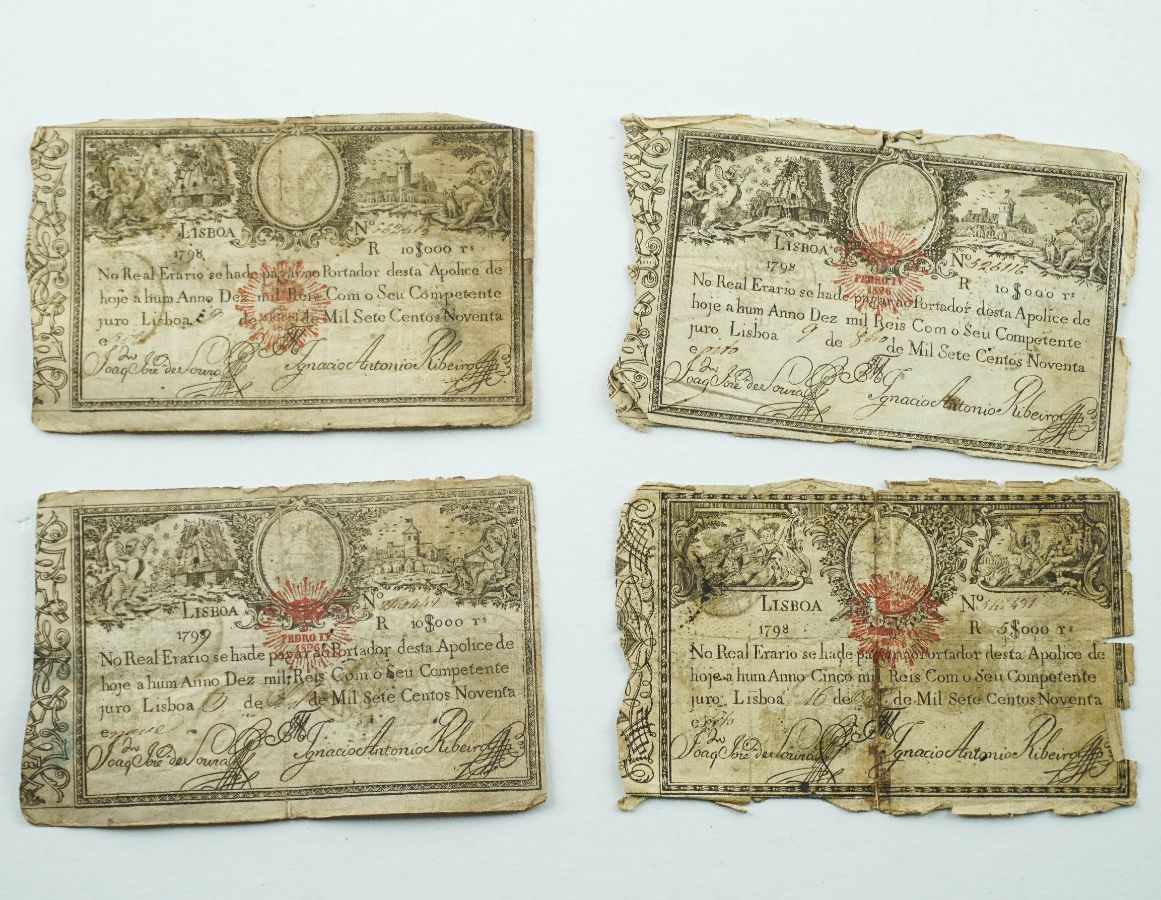 LISBOA Nº
1798 R 10$000 rs
No Real Erario se hade pagar ao Portador desta Apolice de
hoje a hum Anno Dez mil Reis Com o Seu Competente
juro Lisboa de de Mil Sete Centos Noventa
e
Joaq Jose de Souza Ignacio Antonio Ribeiro
LISBOA Nº
1798 R 10$000 rs
PEDRO IV
1826
No Real Erario se hade pagar ao Portador desta Apolice de
hoje a hum Anno Dez mil Reis Com o Seu Competente
juro Lisboa 9 de de Mil Sete Centos Noventa
e oito
Joaq Jose de Souza Ignacio Antonio Ribeiro
LISBOA Nº
1799 R 10$000 rs
PEDRO IV
1826
No Real Erario se hade pagar ao Portador desta Apolice de
hoje a hum Anno Dez mil Reis Com o Seu Competente
juro Lisboa de de Mil Sete Centos Noventa
e nove
Joaq Jose de Souza Ignacio Antonio Ribeiro
LISBOA Nº
1798 R 5$000 rs
PEDRO IV
No Real Erario se hade pagar ao Portador desta Apolice de
hoje a hum Anno Cinco mil Reis Com o Seu Competente
juro Lisboa 16 de de Mil Sete Centos Noventa
e oito
Joaq Jose de Souza Ignacio Antonio Ribeiro